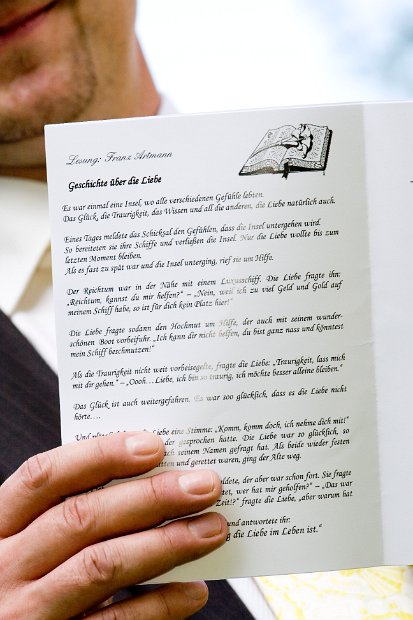 Lesung: Franz Artmann
Geschichte über die Liebe
Es war einmal eine Insel, wo alle verschiedenen Gefühle lebten.
Das Glück, die Traurigkeit, das Wissen und all die anderen, die Liebe natürlich auch.
Eines Tages meldete das Schicksal den Gefühlen, dass die Insel untergehen wird.
So bereiteten sie ihre Schiffe und verließen die Insel. Nur die Liebe wollte bis zum
letzten Moment bleiben.
Als es fast zu spät war und die Insel unterging, rief sie um Hilfe.
Der Reichtum war in der Nähe mit einem Luxusschiff. Die Liebe fragte ihn:
„Reichtum, kannst du mir helfen?“ – „Nein, weil ich zu viel Geld und Gold auf
meinem Schiff habe, so ist für dich kein Platz hier!“
Die Liebe fragte sodann den Hochmut um Hilfe, der auch mit seinem wunder-
schönen Boot vorbeifuhr. „Ich kann dir nicht helfen, du bist ganz nass und könntest
mein Schiff beschmutzen!“
Als die Traurigkeit nicht weit vorbeisegelte, fragte die Liebe: „Traurigkeit, lass mich
mit dir gehen.“ – „Oooh…Liebe, ich bin so traurig, ich möchte besser alleine bleiben.“
Das Glück ist auch weitergefahren. Es war soo glücklich, dass es die Liebe nicht
hörte….
Liebe eine Stimme: „Komm, komm doch, ich nehme dich mit!“
der gesprochen hatte. Die Liebe war so glücklich, so
seinem Namen gefragt hat. Als beide wieder festen
und gerettet waren, ging der Alte weg.
der aber schon fort. Sie fragte
wer hat mir geholfen?“ – „Das war
Zeit!?“ fragte die Liebe, „aber warum hat
und antwortete ihr:
die Liebe im Leben ist.“